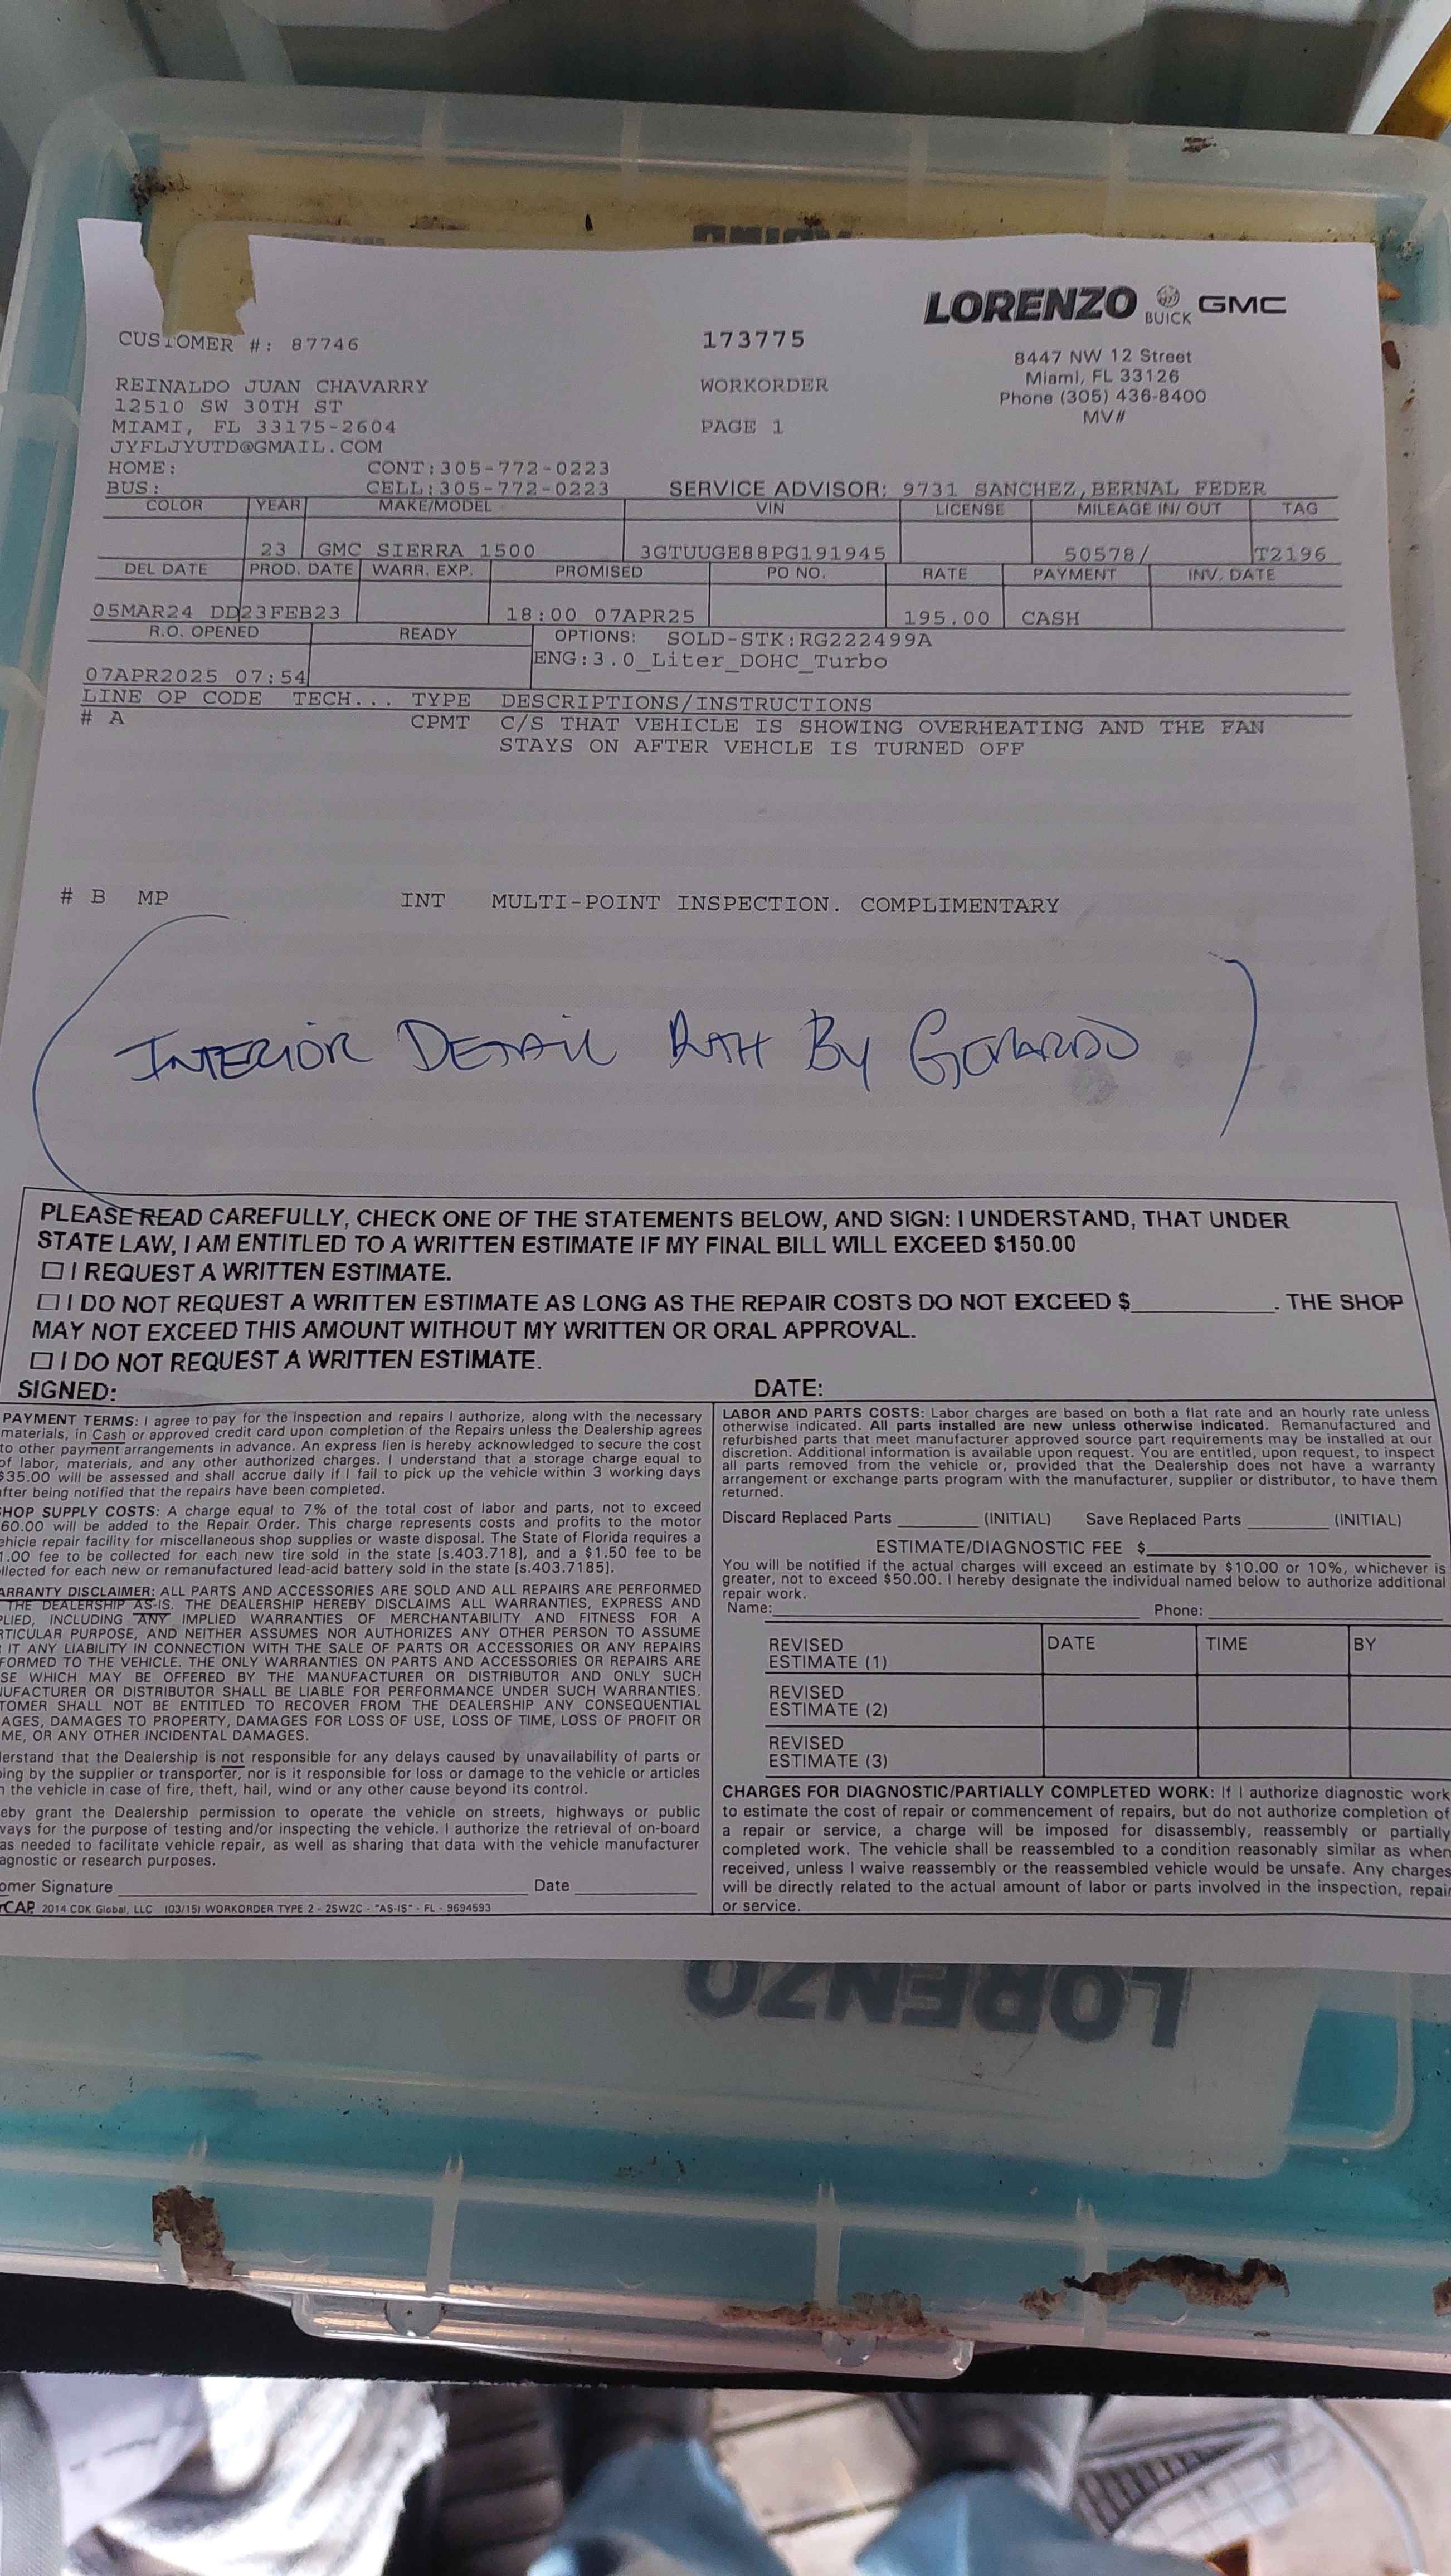 LORENZO BUICK GMC
CUSTOMER #: 87746
173775
8447 NW 12 Street
Miami, FL 33126
Phone (305) 436-8400
MV#
REINALDO JUAN CHAVARRY
WORKORDER
12510 SW 30TH ST
MIAMI, FL 33175-2604
PAGE 1
JYFLJYUTD@GMAIL.COM
HOME: CONT:305-772-0223
BUS: CELL:305-772-0223 SERVICE ADVISOR: 9731 SANCHEZ,BERNAL FEDER
COLOR YEAR MAKE/MODEL VIN LICENSE MILEAGE IN/ OUT TAG
23 GMC SIERRA 1500 3GTUUGE88PG191945 50578/ T2196
DEL DATE PROD. DATE WARR. EXP. PROMISED PO NO. RATE PAYMENT INV. DATE
05MAR24 DD 23FEB23 18:00 07APR25 195.00 CASH
R.O. OPENED READY OPTIONS: SOLD-STK:RG222499A
ENG:3.0_Liter_DOHC_Turbo
07APR2025 07:54
LINE OP CODE TECH... TYPE DESCRIPTIONS/INSTRUCTIONS
# A CPMT C/S THAT VEHICLE IS SHOWING OVERHEATING AND THE FAN
STAYS ON AFTER VEHCLE IS TURNED OFF
# B MP INT MULTI-POINT INSPECTION. COMPLIMENTARY
INTERIOR DETAIL By GERARDO
PLEASE READ CAREFULLY, CHECK ONE OF THE STATEMENTS BELOW, AND SIGN: I UNDERSTAND, THAT UNDER
STATE LAW, I AM ENTITLED TO A WRITTEN ESTIMATE IF MY FINAL BILL WILL EXCEED $150.00
☐ I REQUEST A WRITTEN ESTIMATE.
☐ I DO NOT REQUEST A WRITTEN ESTIMATE AS LONG AS THE REPAIR COSTS DO NOT EXCEED $__________. THE SHOP
MAY NOT EXCEED THIS AMOUNT WITHOUT MY WRITTEN OR ORAL APPROVAL.
☐ I DO NOT REQUEST A WRITTEN ESTIMATE.
SIGNED: DATE:
PAYMENT TERMS: I agree to pay for the inspection and repairs I authorize, along with the necessary
materials, in Cash or approved credit card upon completion of the Repairs unless the Dealership agrees
to other payment arrangements in advance. An express lien is hereby acknowledged to secure the cost
of labor, materials, and any other authorized charges. I understand that a storage charge equal to
$35.00 will be assessed and shall accrue daily if I fail to pick up the vehicle within 3 working days
after being notified that the repairs have been completed.
HOP SUPPLY COSTS: A charge equal to 7% of the total cost of labor and parts, not to exceed
60.00 will be added to the Repair Order. This charge represents costs and profits to the motor
ehicle repair facility for miscellaneous shop supplies or waste disposal. The State of Florida requires a
1.00 fee to be collected for each new tire sold in the state [s.403.718], and a $1.50 fee to be
llected for each new or remanufactured lead-acid battery sold in the state [s.403.7185].
ARRANTY DISCLAIMER: ALL PARTS AND ACCESSORIES ARE SOLD AND ALL REPAIRS ARE PERFORMED
THE DEALERSHIP AS-IS. THE DEALERSHIP HEREBY DISCLAIMS ALL WARRANTIES, EXPRESS AND
PLIED, INCLUDING ANY IMPLIED WARRANTIES OF MERCHANTABILITY AND FITNESS FOR A
RTICULAR PURPOSE, AND NEITHER ASSUMES NOR AUTHORIZES ANY OTHER PERSON TO ASSUME
IT ANY LIABILITY IN CONNECTION WITH THE SALE OF PARTS OR ACCESSORIES OR ANY REPAIRS
FORMED TO THE VEHICLE. THE ONLY WARRANTIES ON PARTS AND ACCESSORIES OR REPAIRS ARE
SE WHICH MAY BE OFFERED BY THE MANUFACTURER OR DISTRIBUTOR AND ONLY SUCH
UFACTURER OR DISTRIBUTOR SHALL BE LIABLE FOR PERFORMANCE UNDER SUCH WARRANTIES.
TOMER SHALL NOT BE ENTITLED TO RECOVER FROM THE DEALERSHIP ANY CONSEQUENTIAL
AGES, DAMAGES TO PROPERTY, DAMAGES FOR LOSS OF USE, LOSS OF TIME, LOSS OF PROFIT OR
ME, OR ANY OTHER INCIDENTAL DAMAGES.
erstand that the Dealership is not responsible for any delays caused by unavailability of parts or
ing by the supplier or transporter, nor is it responsible for loss or damage to the vehicle or articles
n the vehicle in case of fire, theft, hail, wind or any other cause beyond its control.
eby grant the Dealership permission to operate the vehicle on streets, highways or public
ways for the purpose of testing and/or inspecting the vehicle. I authorize the retrieval of on-board
as needed to facilitate vehicle repair, as well as sharing that data with the vehicle manufacturer
agnostic or research purposes.
omer Signature Date
CAP. 2014 CDK Global, LLC (03/15) WORKORDER TYPE 2 - 2SW2C - "AS-IS" - FL - 9694593
LABOR AND PARTS COSTS: Labor charges are based on both a flat rate and an hourly rate unless
otherwise indicated. All parts installed are new unless otherwise indicated. Remanufactured and
refurbished parts that meet manufacturer approved source part requirements may be installed at our
discretion. Additional information is available upon request. You are entitled, upon request, to inspect
all parts removed from the vehicle or, provided that the Dealership does not have a warranty
arrangement or exchange parts program with the manufacturer, supplier or distributor, to have them
returned.
Discard Replaced Parts ________ (INITIAL) Save Replaced Parts ________ (INITIAL)
ESTIMATE/DIAGNOSTIC FEE $
You will be notified if the actual charges will exceed an estimate by $10.00 or 10%, whichever is
greater, not to exceed $50.00. I hereby designate the individual named below to authorize additional
repair work.
Name: Phone:
REVISED ESTIMATE (1) DATE TIME BY
REVISED ESTIMATE (2)
REVISED ESTIMATE (3)
CHARGES FOR DIAGNOSTIC/PARTIALLY COMPLETED WORK: If I authorize diagnostic work
to estimate the cost of repair or commencement of repairs, but do not authorize completion of
a repair or service, a charge will be imposed for disassembly, reassembly or partially
completed work. The vehicle shall be reassembled to a condition reasonably similar as when
received, unless I waive reassembly or the reassembled vehicle would be unsafe. Any charges
will be directly related to the actual amount of labor or parts involved in the inspection, repair
or service.
LORENZO